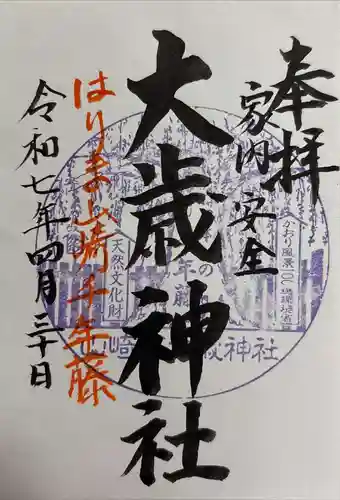 奉拝
家内安全
大歳神社
はりま山崎千年藤
令和七年四月三十日
かおり風景100
天然文化財
年の藤
崎 歳神社